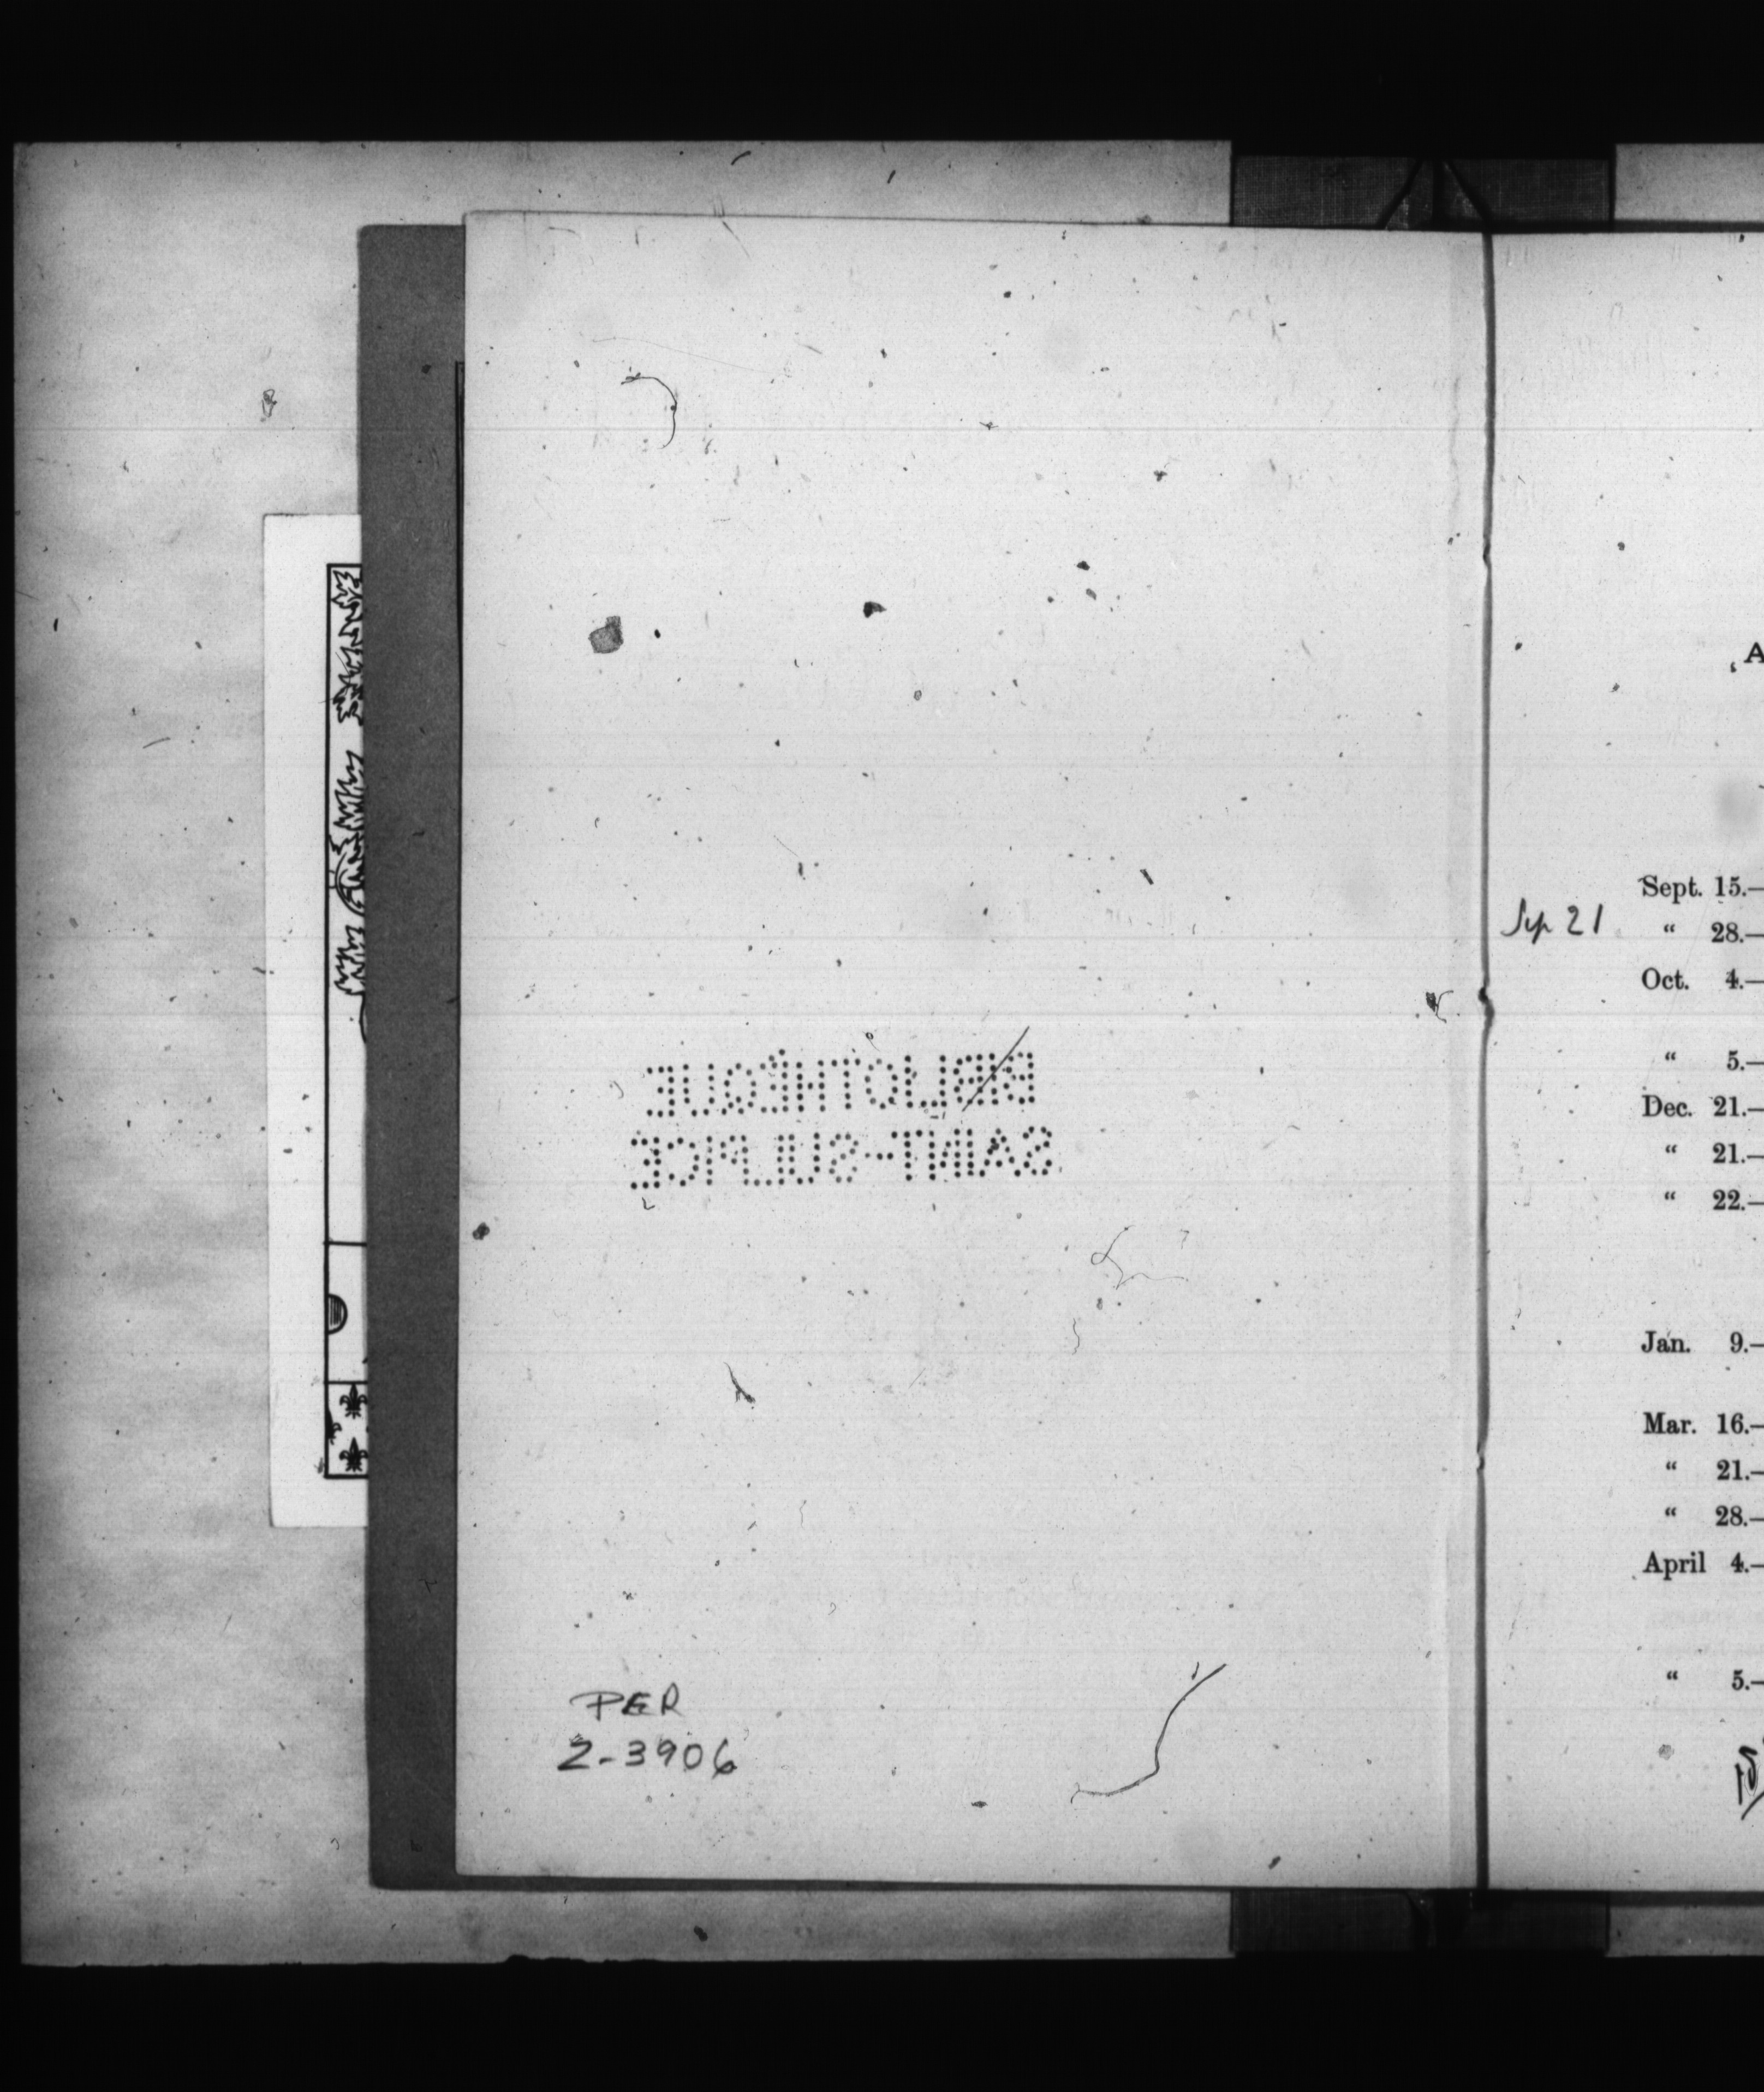 BIBLIOTHÈQUE
SAINT-SULPICE
PER
2-3906
A
Sept. 15.—
Sep 21
“ 28.—
Oct. 4.—
“ 5.—
Dec. 21.—
“ 21.—
“ 22.—
Jan. 9.—
Mar. 16.—
“ 21.—
“ 28.—
April 4.—
“ 5.—